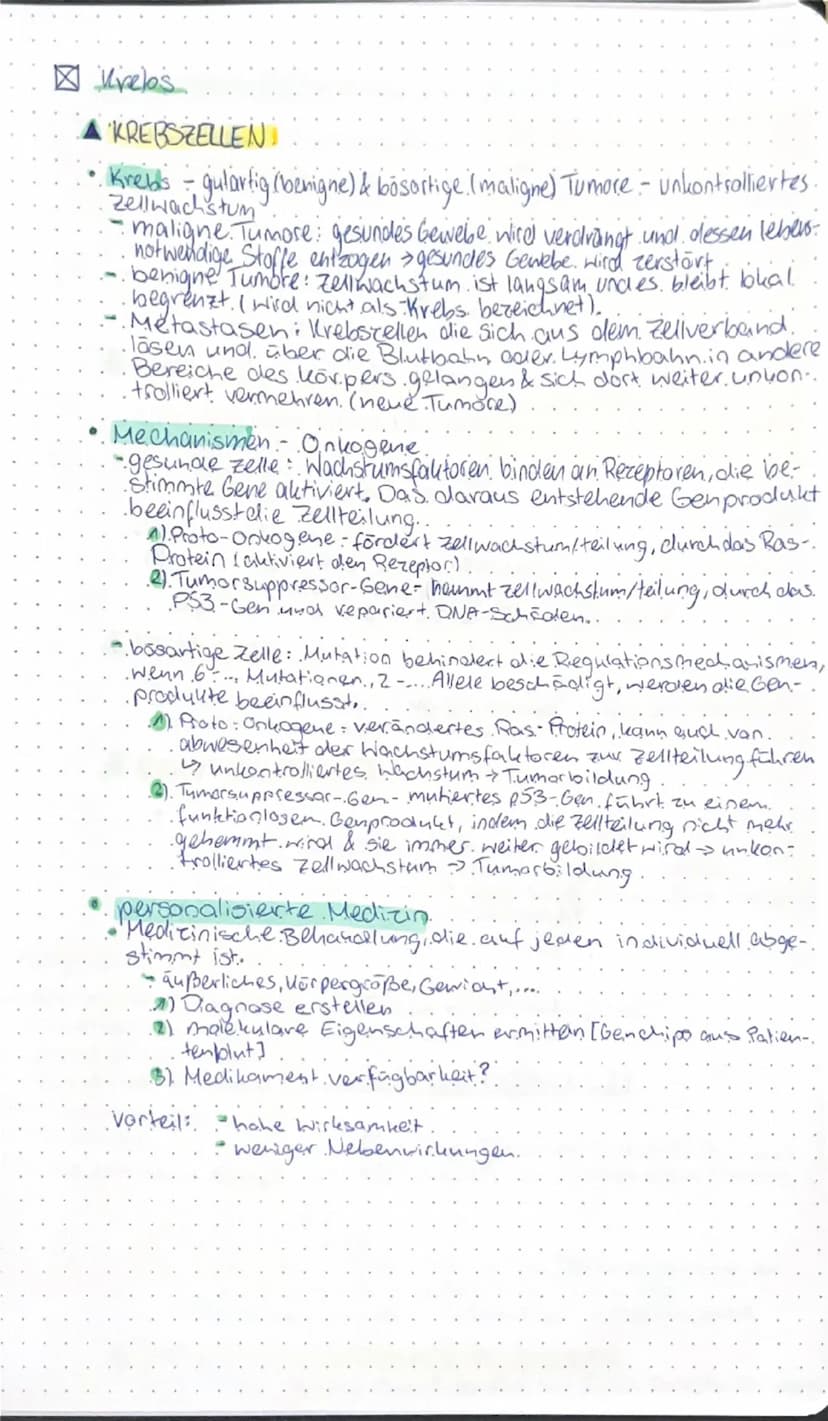 Krebs
KREBSZELLEN
• Krebs - gutartig (benigne) & bösartige (maligne) Tumore - unkontrolliertes
Zellwachstum
- maligne Tumore: gesundes Gewebe wird verdrängt und dessen lebens-
notwendige Stoffe entzogen → gesundes Gewebe wird zerstört
- benigne Tumore: Zellwachstum ist langsam und es bleibt lokal
begrenzt. (wird nicht als Krebs bezeichnet).
- Metastasen: Krebszellen die sich aus dem Zellverband
lösen und über die Blutbahn oder Lymphbahn in andere
Bereiche des Körpers gelangen & sich dort weiter unkon-
trolliert vermehren. (neue Tumore)
• Mechanismen - Onkogene
- gesunde Zelle: Wachstumsfaktoren binden an Rezeptoren, die be-
stimmte Gene aktiviert. Das daraus entstehende Genprodukt
beeinflusst die Zellteilung.
1) Proto-Onkogene - fördert Zellwachstum/teilung, durch das Ras-
Protein (aktiviert den Rezeptor)
2) Tumorsuppressor-Gene - hemmt Zellwachstum/teilung, durch das
P53-Gen und repariert DNA-Schäden.
- bösartige Zelle: Mutation behindert die Regulationsmechanismen,
wenn 6-... Mutationen, 2-... Allele beschädigt, werden die Gen-
produkte beeinflusst.
1) Proto-Onkogene - verändertes Ras-Protein, kann auch von
abwesenheit der Wachstumsfaktoren zur Zellteilung führen
↳ unkontrolliertes Wachstum → Tumorbildung
2) Tumorsuppressor-Gen - mutiertes p53-Gen führt zu einem
funktionlosen Genprodukt, indem die Zellteilung nicht mehr
gehemmt wird & sie immer weiter gebildet wird → unkon-
trolliertes Zellwachstum → Tumorbildung
• personalisierte Medizin
• Medizinische Behandlung, die auf jeden individuell abge-
stimmt ist.
- äußerliches, Körpergröße, Gewicht,...
1) Diagnose erstellen
2) molekulare Eigenschaften ermitten [Genchips aus Patien-
tenblut]
3) Medikament verfügbarkeit?
Vorteil: - hohe Wirksamkeit
- weniger Nebenwirkungen.